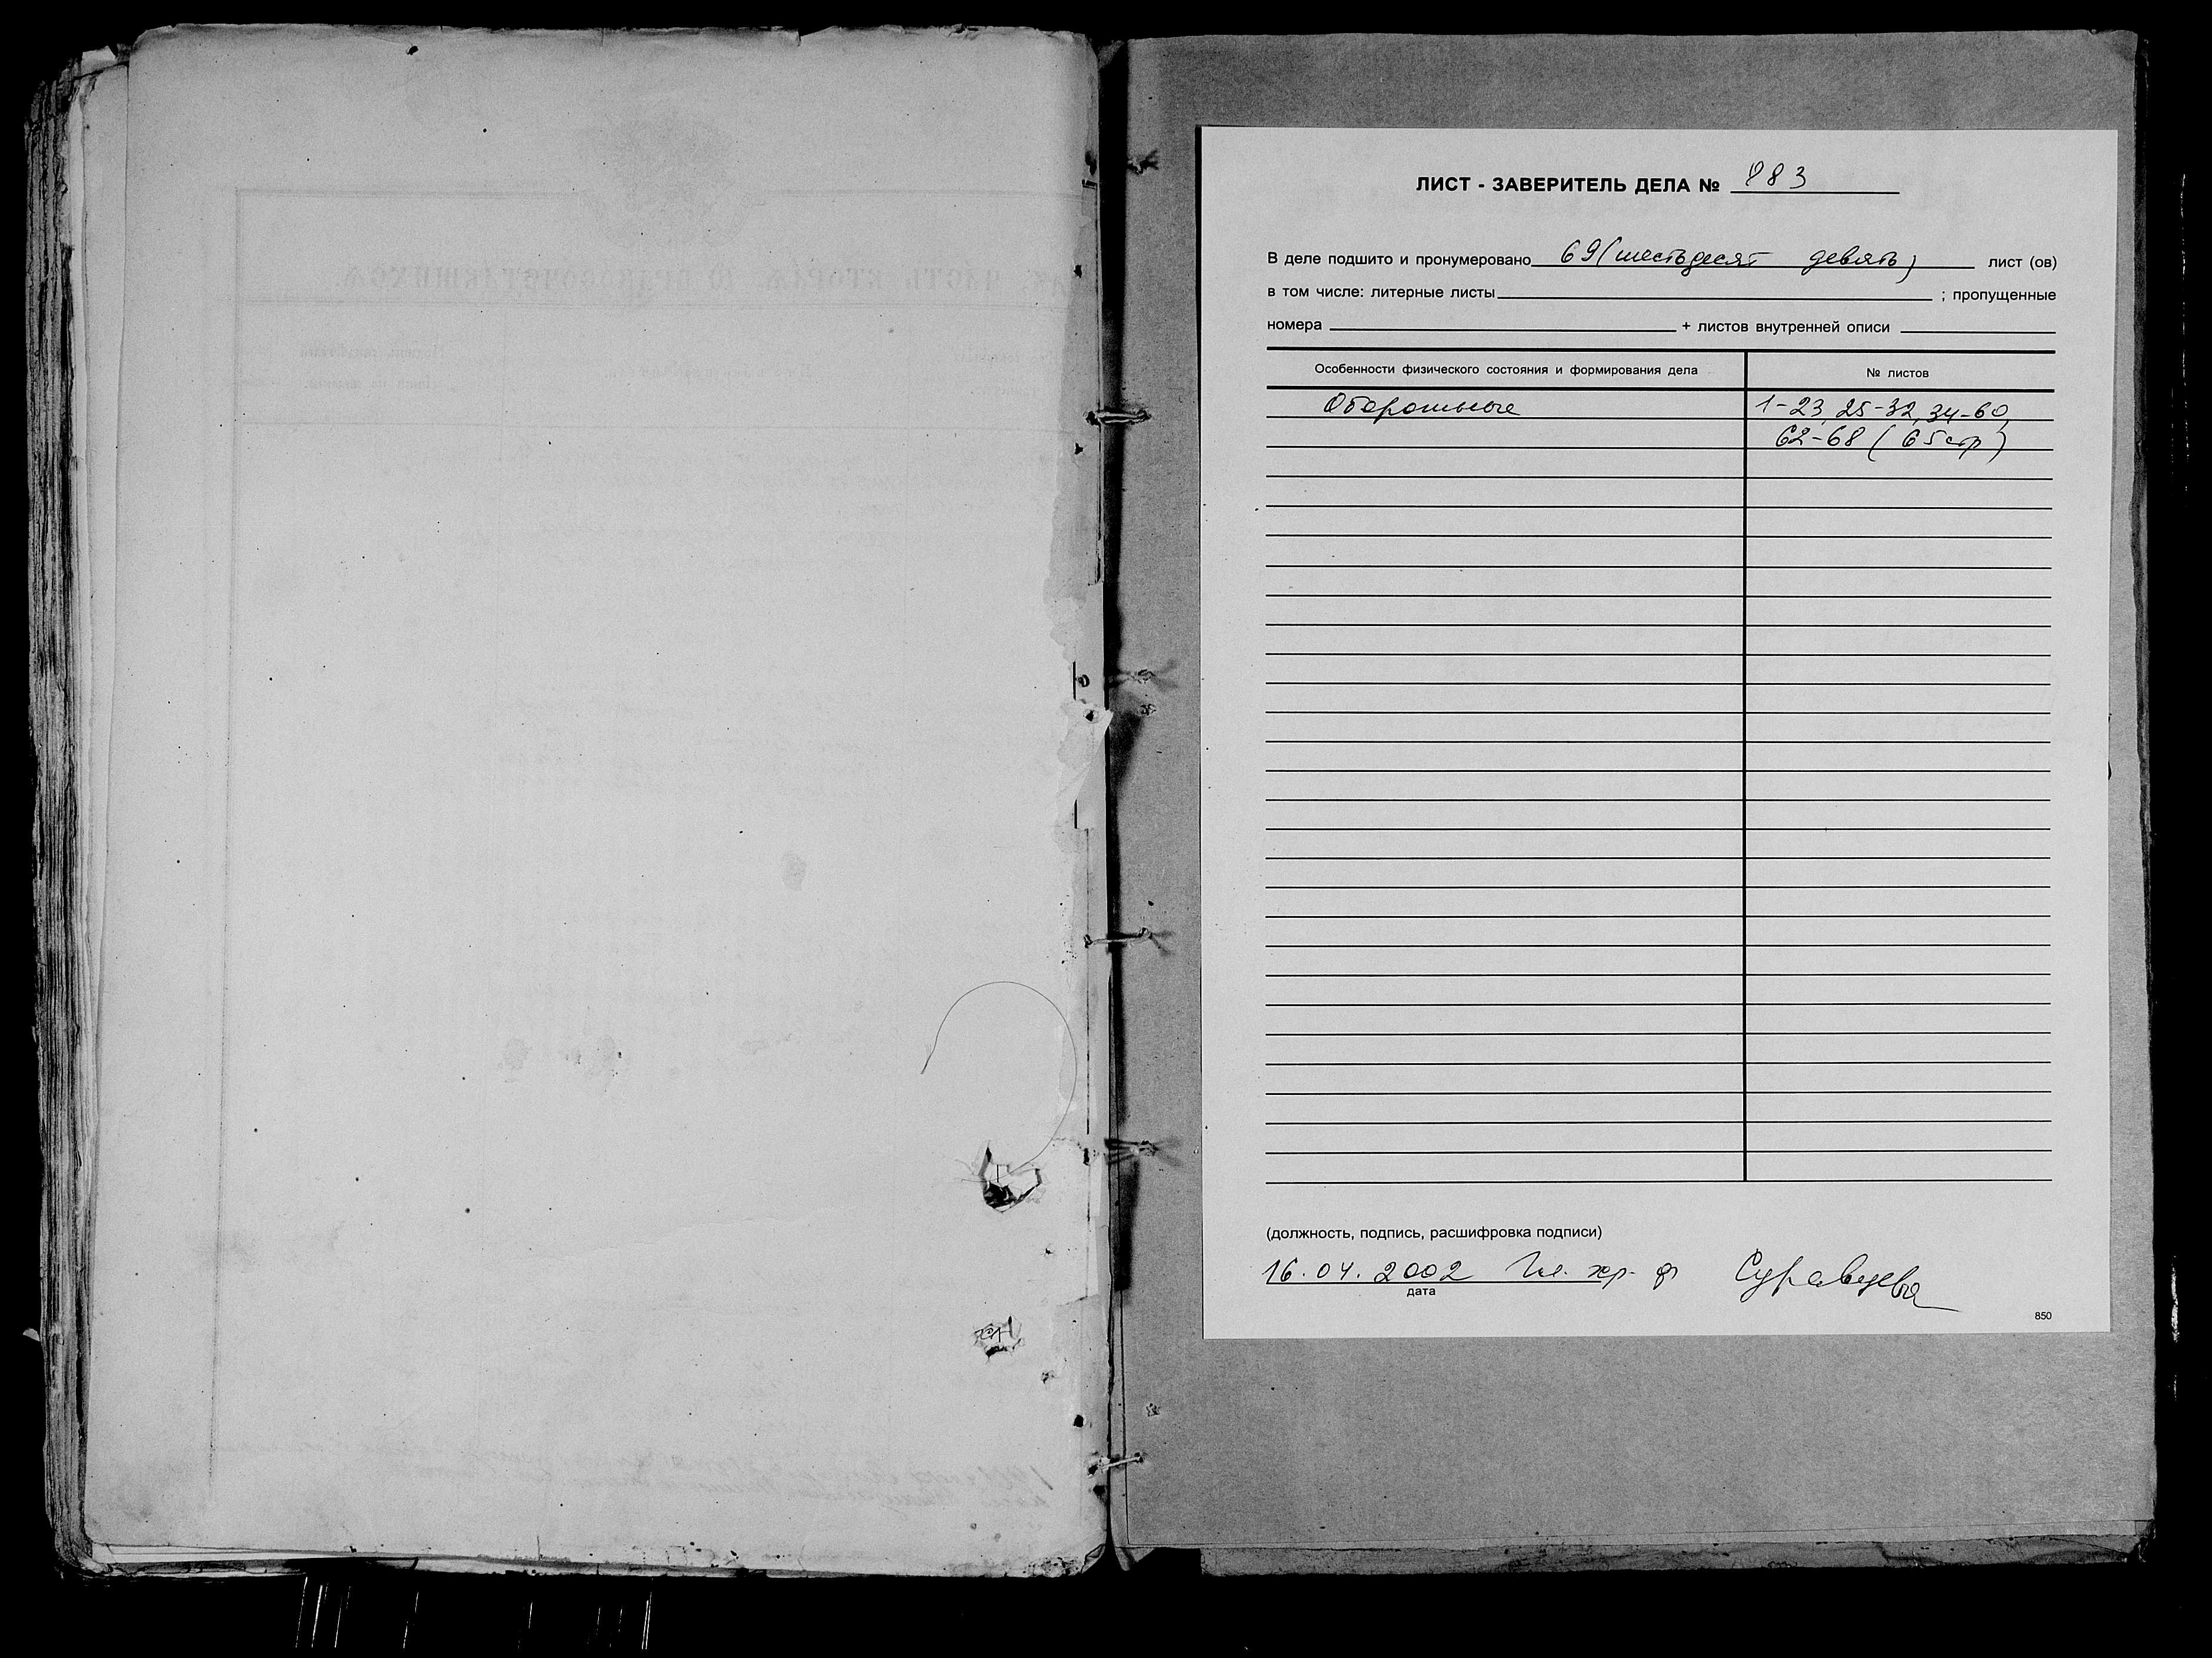 ЛИСТ - ЗАВЕРИТЕЛЬ ДЕЛА № 883
В деле подшито и пронумеровано 69 (шестьдесят девять) лист (ов)
в том числе: литерные листы ; пропущенные
номера + листов внутренней описи
Особенности физического состояния и формирования дела № листов
Оборотные 1-23, 25-32, 34-60,
62-68 (65 стр)
(должность, подпись, расшифровка подписи)
16.04.2002 Гл. хр. ф Суравцева
дата
850